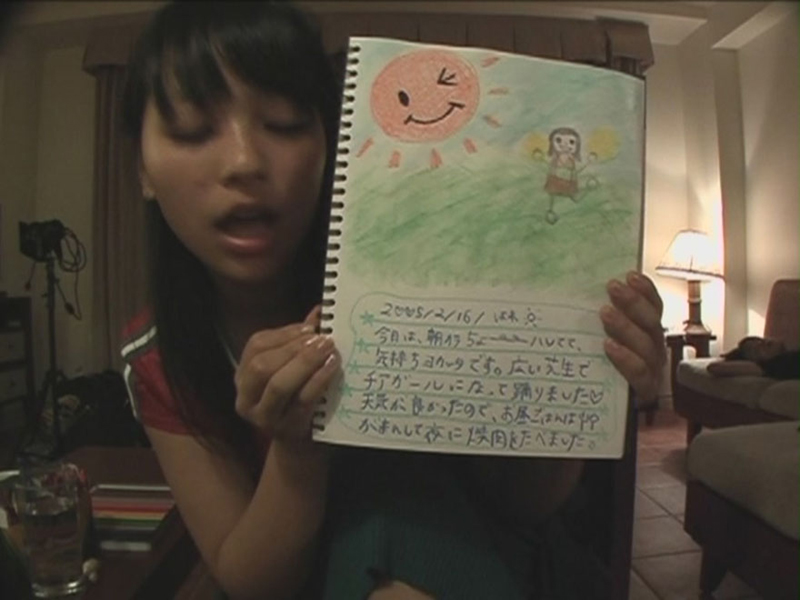 2005/2/16/ はれ
今日は、朝からちょーーハレてて、
気持ちヨカッタです。広い芝生で
チアガールになって踊りました♡
天気が良かったので、お昼ごはんは
がまんして夜に焼肉をたべました。